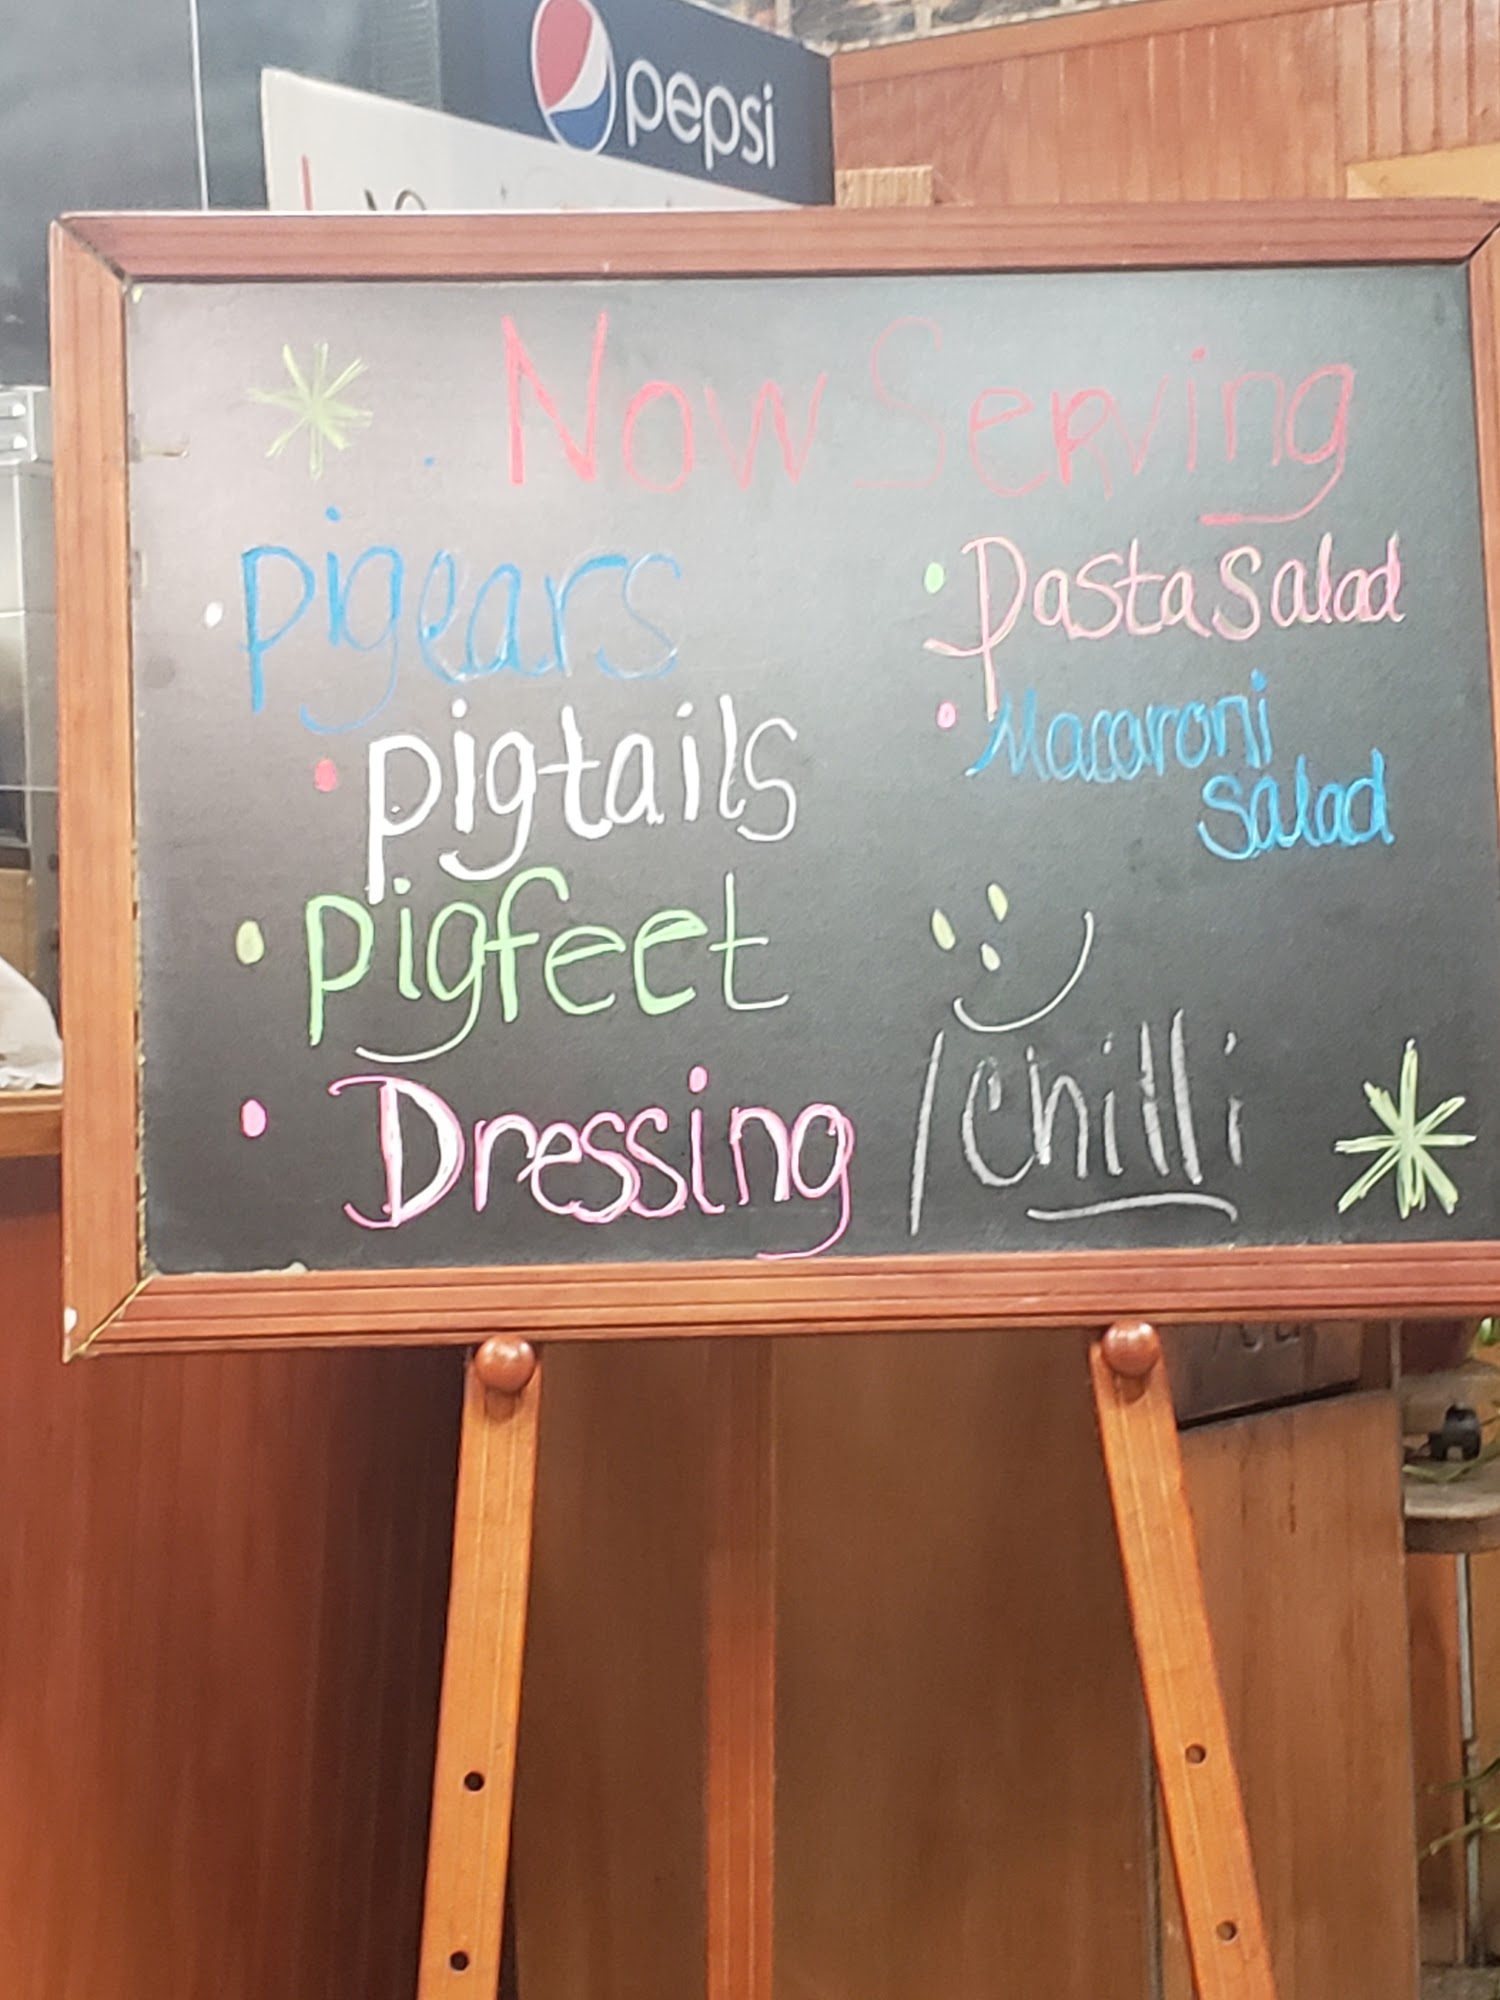 pepsi
Now Serving
• pigears
• pigtails
• pigfeet
• Dressing / chilli
• Pasta Salad
• Macaroni
salad